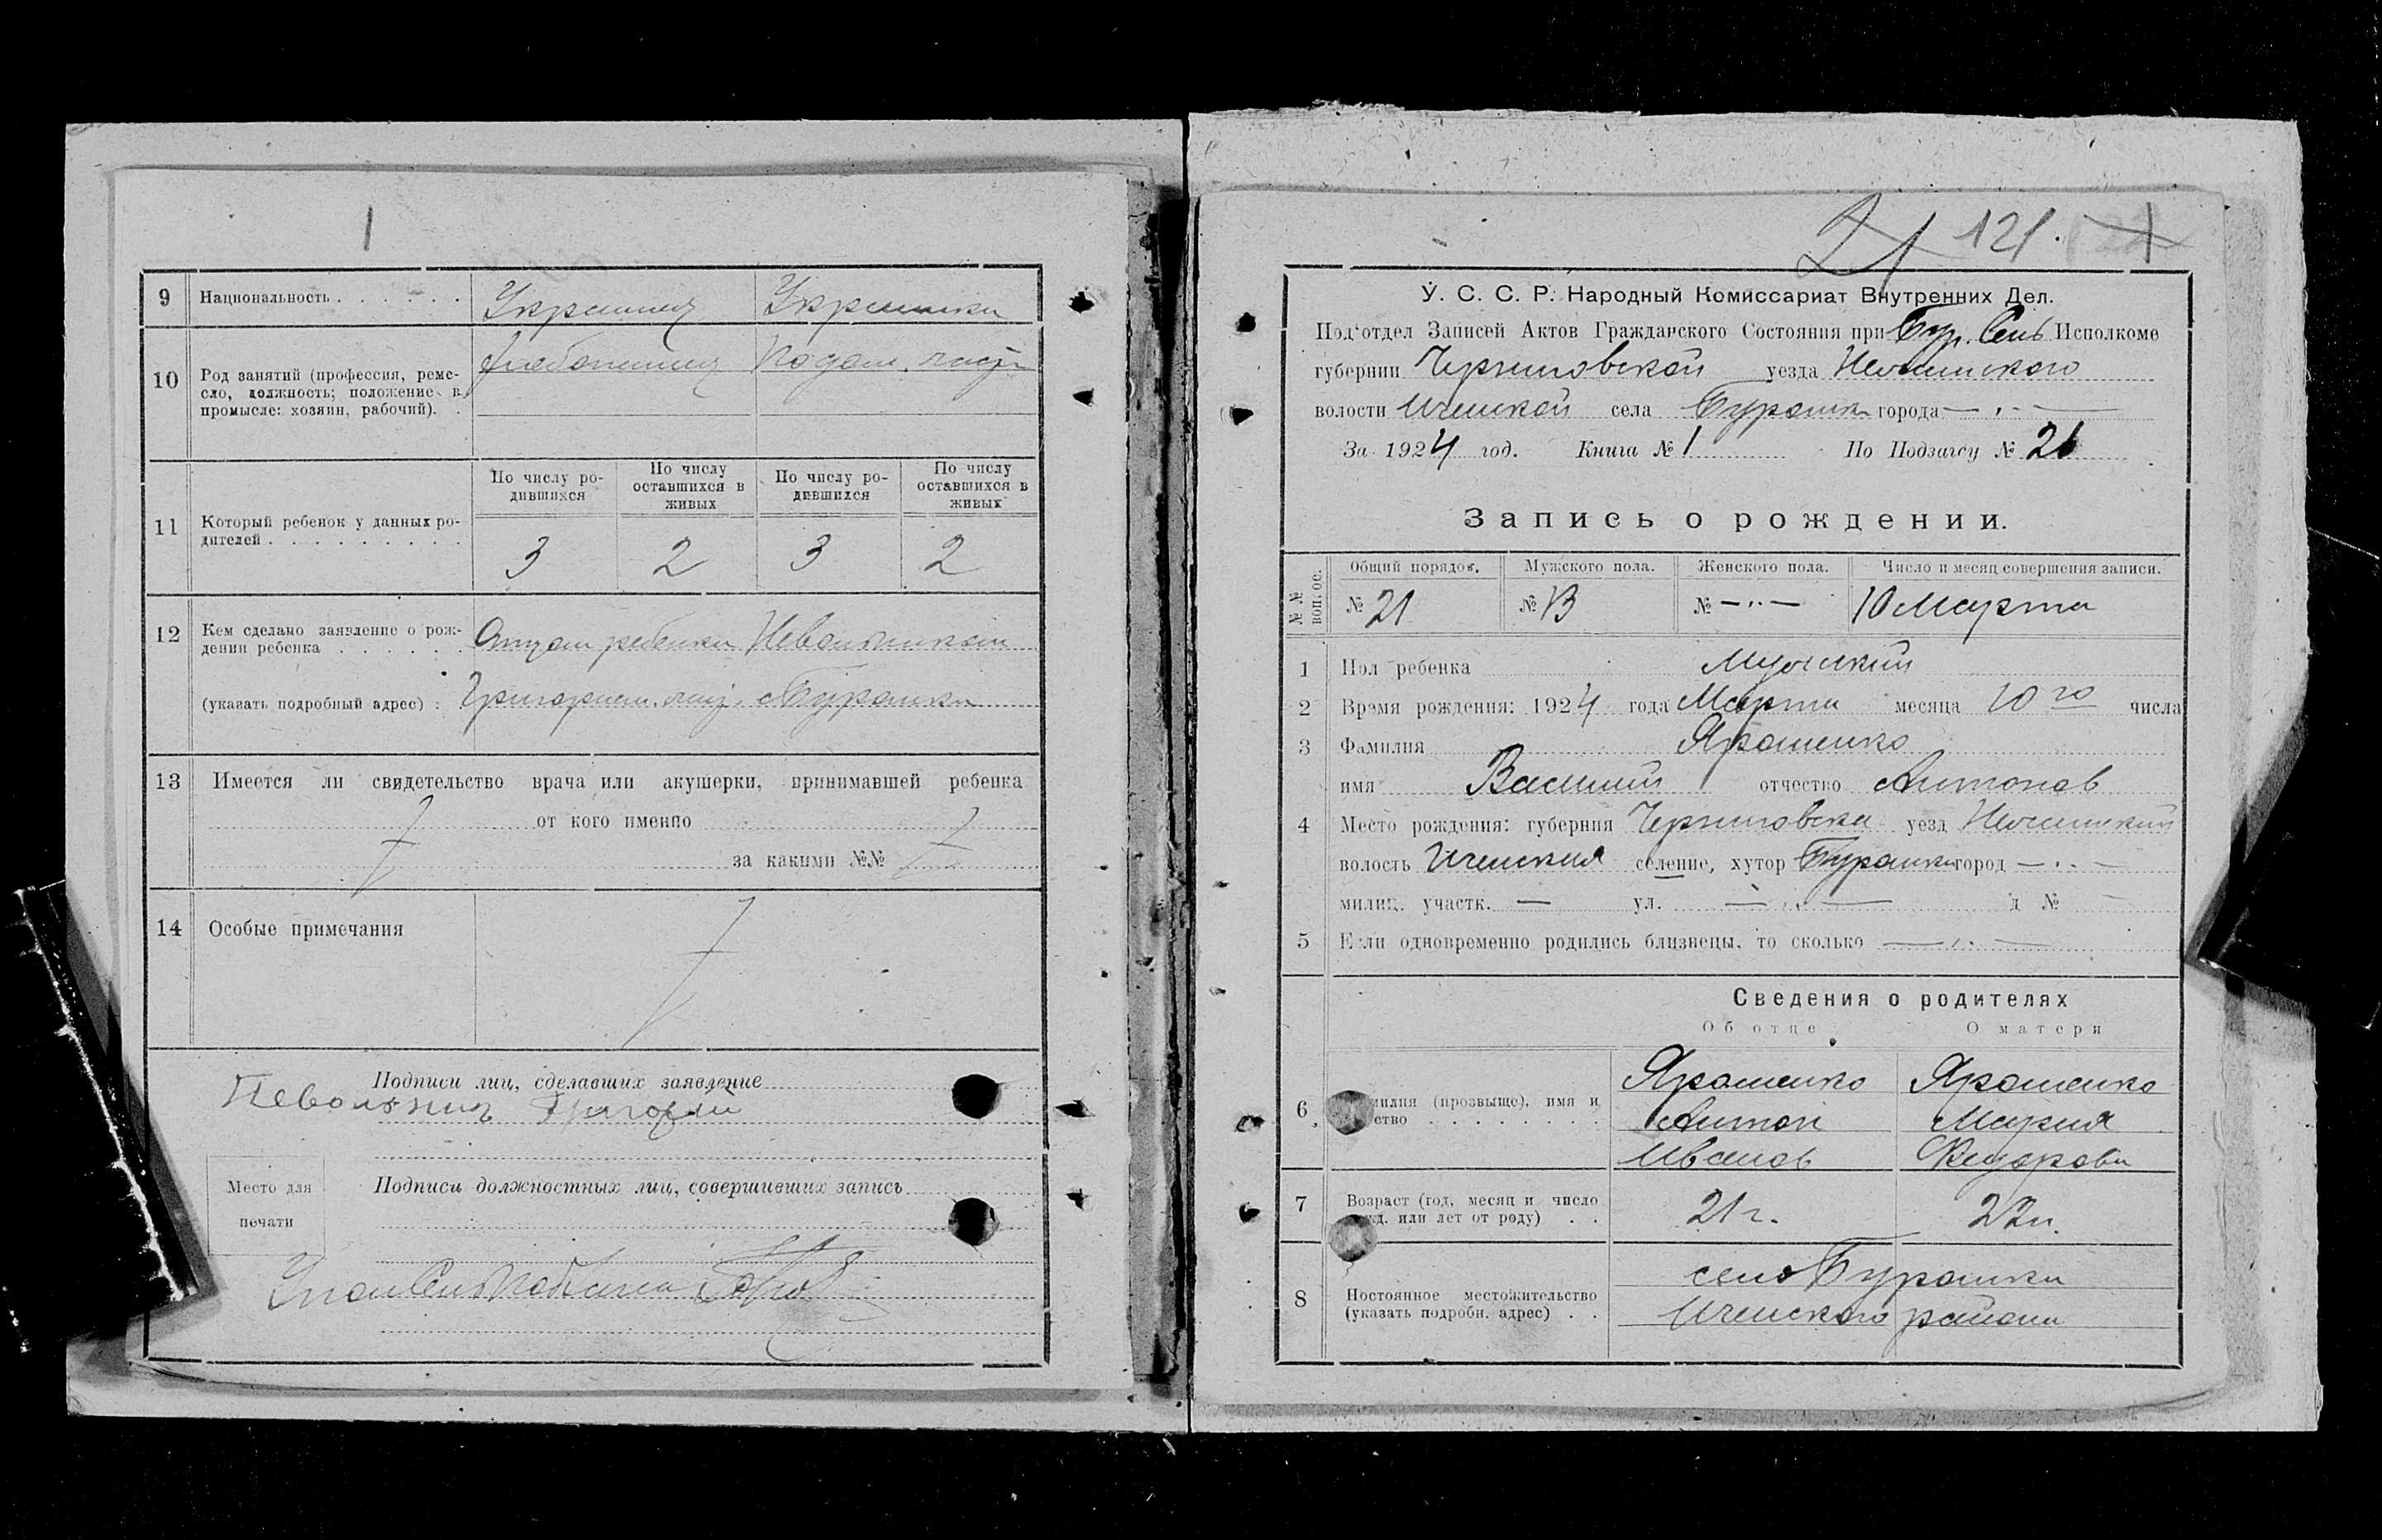 1
9 Национальность . . . . . . Украинец Украинка
10 Род занятий (профессия, реме-
сло, должность; положение в
промысле: хозяин, рабочий). . Хлебопашец
11 Который ребенок у данных ро-
дителей . . . . . . . . .
По числу ро-
дившихся
По числу
оставшихся в
живых
По числу ро-
дившихся
По числу
оставшихся в
живых
3 2 3 2
12 Кем сделано заявление о рож-
дении ребенка . . . . . . Отцом ребенка Невольником
(указать подробный адрес) : Григорием с Бурошки
13 Имеется ли свидетельство врача или акушерки, принимавшей ребенка
от кого именно
за какими №№
14 Особые примечания
Подписи лиц, сделавших заявление
Невольник Григорий
Подписи должностных лиц, совершивших запись
Место для
печати
21 121.
У. С. С. Р. Народный Комиссариат Внутренних Дел.
Под'отдел Записей Актов Гражданского Состояния при Бур. Сель Исполкоме
губернии Черниговской уезда Нежинского
волости Иченской села Бурошк города — „ —
За 1924 год. Книга № 1 По Подзагсу № 21
Запись о рождении.
№ № вопрос.
Общий порядок. Мужского пола. Женского пола. Число и месяц совершения записи.
№ 21 № 13 № — „ — 10 Марта
1 Пол ребенка Мужский
2 Время рождения: 1924 года Марта месяца 10 го числа
3 Фамилия Ярошенко
имя Василий отчество Антонов
4 Место рождения: губерния Черниговска уезд Нежинский
волость Иченская селение, хутор Бурошки город — „ —
милиц. участк. — ул. — „ — д №
5 Если одновременно родились близнецы, то сколько — „ —
Сведения о родителях
Об отце О матери
6 милия (прозвыще), имя и
ство . . . . . . . .
Ярошенко Ярошенко
Антон Мария
Иванов Федорова
7 Возраст (год, месяц и число
жд. или лет от роду) . . 21 г. 22 г.
8 Постоянное местожительство
(указать подробн. адрес) . .
село Бурошки
Иченского района